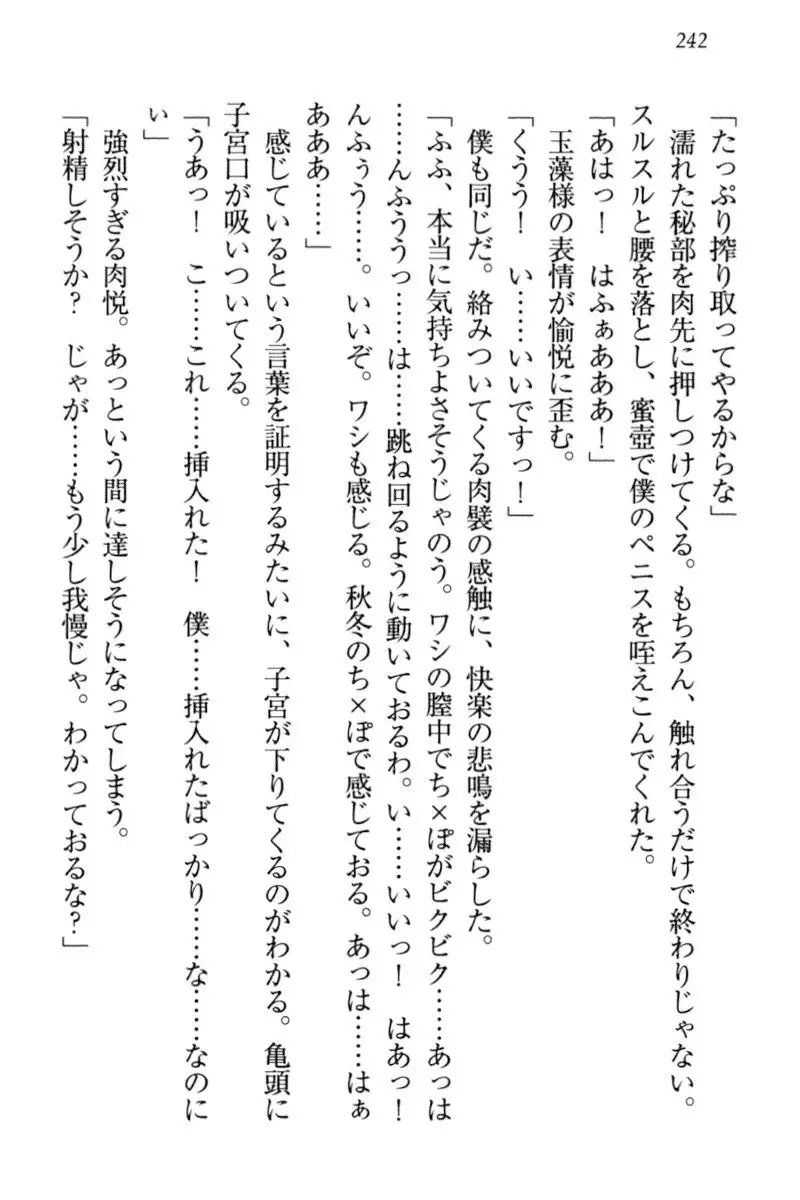 242
「たっぷり搾り取ってやるからな」
　濡れた秘部を肉先に押しつけてくる。もちろん、触れ合うだけで終わりじゃない。
スルスルと腰を落とし、蜜壺で僕のペニスを咥えこんでくれた。
「あはっ！　はふぁあああ！」
　玉藻様の表情が愉悦に歪む。
「くうう！　い……いいですっ！」
　僕も同じだ。絡みついてくる肉襞の感触に、快楽の悲鳴を漏らした。
「ふふ、本当に気持ちよさそうじゃのう。ワシの膣中でち×ぽがビクビク……あっは
……んふううっ……は……跳ね回るように動いておるわ。い……いいっ！　はあっ！
んふぅう……。いいぞ。ワシも感じる。秋冬のち×ぽで感じておる。あっは……はぁ
あああ……」
　感じているという言葉を証明するみたいに、子宮が下りてくるのがわかる。亀頭に
子宮口が吸いついてくる。
「うあっ！　こ……これ……挿入れた！　僕……挿入れたばっかり……な……なのに
ぃ」
　強烈すぎる肉悦。あっという間に達しそうになってしまう。
「射精しそうか？　じゃが……もう少し我慢じゃ。わかっておるな？」